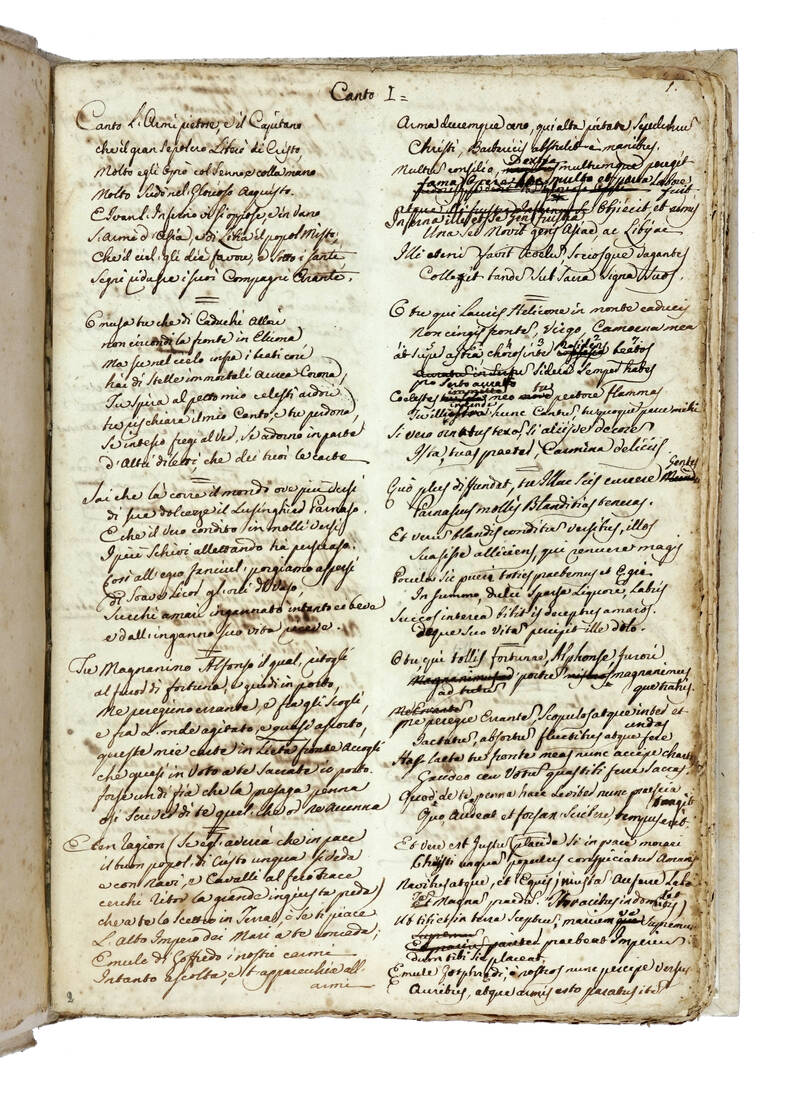 Canto I =
1.
Canto l'Armi pietose, e il Capitano
che il gran Sepolcro Liberò di Cristo,
Molto egli oprò col Senno, e colla mano
Molto Soffrì nel Glorioso Acquisto.
E in van l'Inferno vi si oppose, e in vano
S'armò d'Asia, e di Libia il popol Misto,
Che il ciel gli diè favore, e Sotto i Santi
Segni ridusse i suoi Compagni Erranti.
O musa tu che di Caduchi Allori
non circondi la fronte in Elicona,
Ma su nel cielo infra i beati cori
hai di Stelle immortali Aurea Corona,
Tu spira al petto mio celesti ardori
tu rischiara il mio Canto, e tu perdona,
Se intesso fregi al Ver, Se adorno in parte
d'Altri diletti che dei tuoi le carte
Sai che là corre il mondo ove più versi
di sue dolcezze il Lusinghier Parnaso,
E che il Vero condito in molli Versi
I più Schivi allettando ha persuaso.
Così all'egro fanciul, porgiamo aspersi
Di Soave Licor gli orli del Vaso,
Succhi amari ingannato intanto ei beve
e dall'inganno suo vita riceve.
Tu Magnanimo Alfonso il qual ritogli
al furor di fortuna, e guidi in porto
Me peregrino errante, e fra gli Scogli
e fra l'onde agitato, e quasi assorto,
queste mie carte in Lieta fronte Accogli
che quasi in Voto a te Sacrate io porto.
forse un dì fia che la presaga penna
osi Scriver di te quel, che or ne Accenna
È ben ragion (Se egli averrà che in pace
il buon popol di Cristo unqua si veda
e con Navi, e Cavalli al fero trace
cerchi ritor la grande ingiusta preda)
che a te lo Scettro in Terra, e Se ti piace
L'Alto Impero dei Mari a te conceda;
Emulo di Goffredo i nostri carmi
Intanto ascolta, e t'apparecchia all'
armi
2
Arma ducemque cano, qui alta pietate Sepulchrum
Christi, Barbaricis abstulit e manibus.
Multus consilio, Dextra multumque peregit
fama
Inferna
Una Se Movit gens Asiae, ac Libyae
Illi etenim favit Coelum Sociosque vagantes
Collegit tandem Sub Sacra Signa Suos.
O tu qui Lauris Helicone in monte caducis
non cingis frontem, Virgo, Camoena mea
astra choros inter beatos
Sidera Semper habes
pro Serto aurato
Coelestes immitte meo tu pectore flammas
Tu illustra nunc Cantum tuque parce mihi
Si vero ornatus texo, Si aliisve decoro
Ista, tuas praeter, Carmina deliciis.
Quo plus diffundat, tu illuc Scis currere Gentes
Parnasus mollis Blanditias bonus.
Et verum blandis conditum versibus, illos
Suasisse alliciens, qui renuere magis
Pocula Sic pueris totics praebemus et Egris
In Summo, dulci Sparsa Liquore, Labris
Succos interea bibit is deceptus amaros.
Deque Suo Vitam percipit ille dolo.
O tu, qui tollis fortunae, Alphonse, furori
ad tutum portum magnanimus
que trahis.
me peregre Errantem, Scopulos atque inter et
undas
Jactatum, absortum fluctibus atque fere
Has laeta tu fronte meas nunc accipe chartas
Gaudeo ceu Votum quas tibi ferre Sacras.
Quod de te, penna haec Leviter nunc praescia
tangit
Quo Audeat et forsan Scribere tempus erit.
Et vere est Justum (placida Si in pace morari
Christi unquam populus conspiciatur Amans
Navibus atque, et Equis, iniusta Auferre
Magnam praedam Thracibus indomitis)
Ut tibi et in terra Sceptrum, marium Supremum
pariter praebeat Imperium
dum tibi Sic placeat.
Emule Jotphredi nostros nunc percipe versus
Auribus, atque armis esto paratus